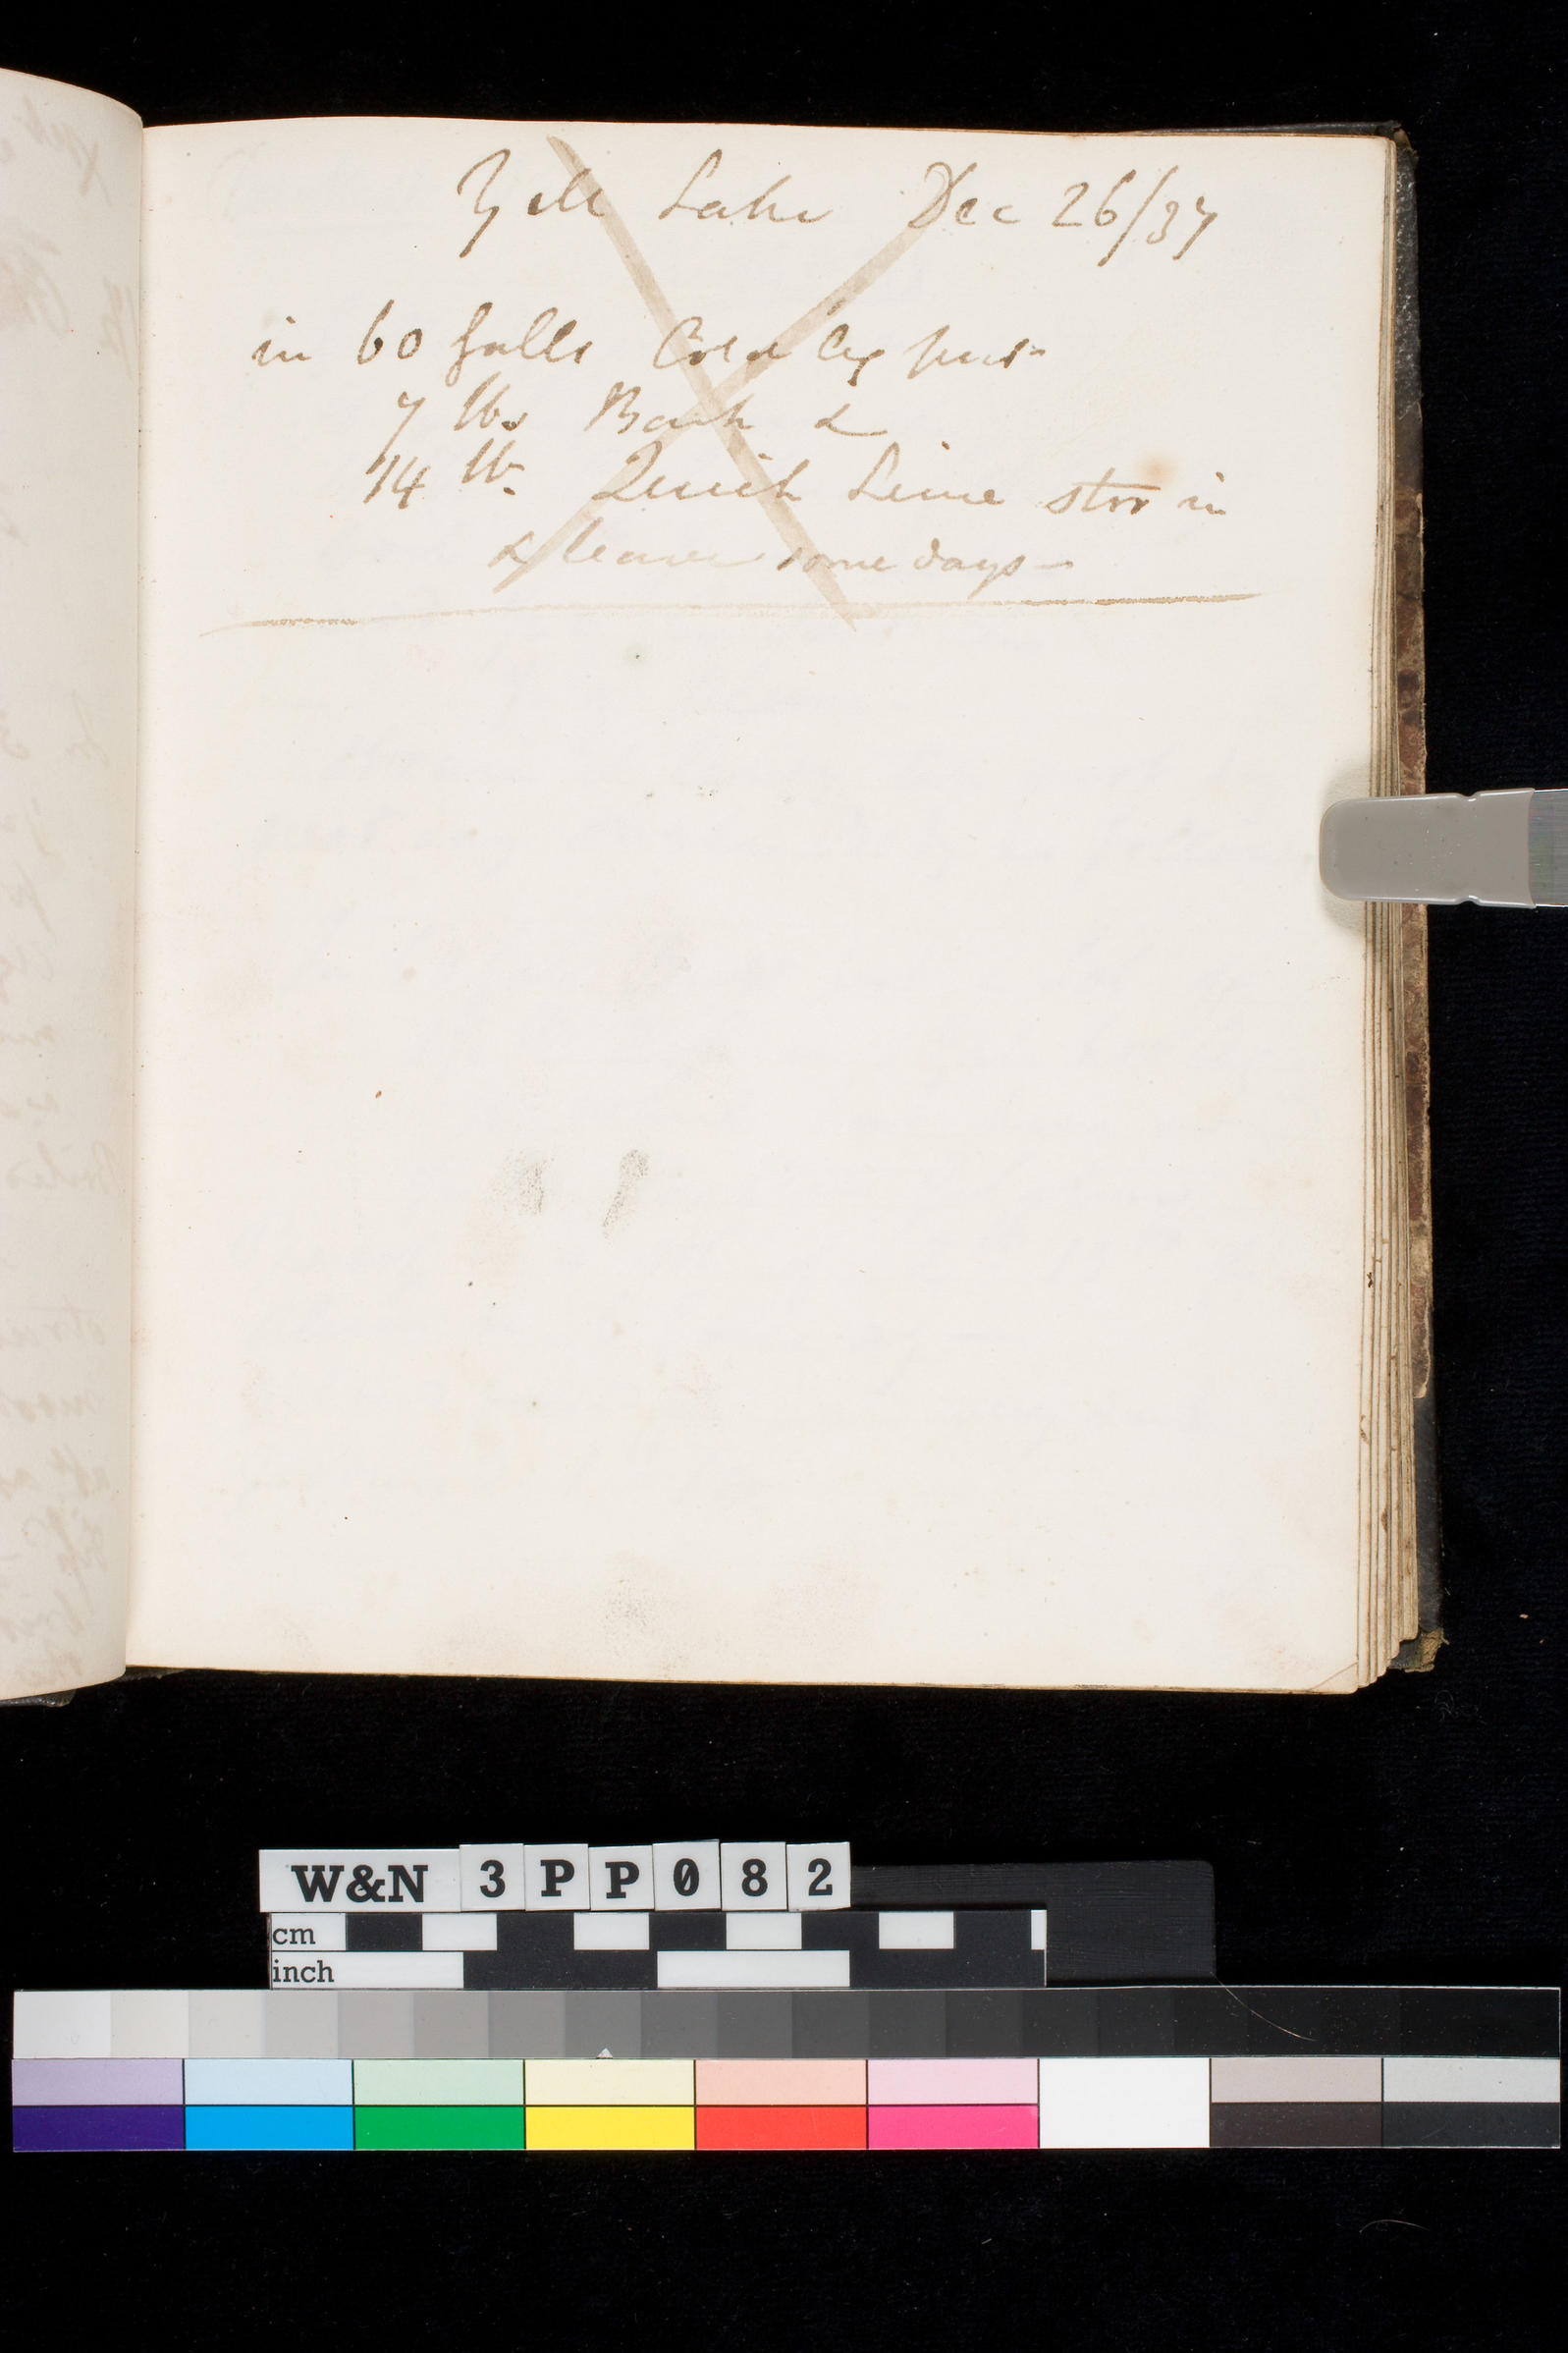 Yell Lake Dec 26/37
in 60 galls Cold Aq put
7 lbs Bark &
14 lb. Quick Lime stir in
& leave some days
W&N 3PP082
cm
inch